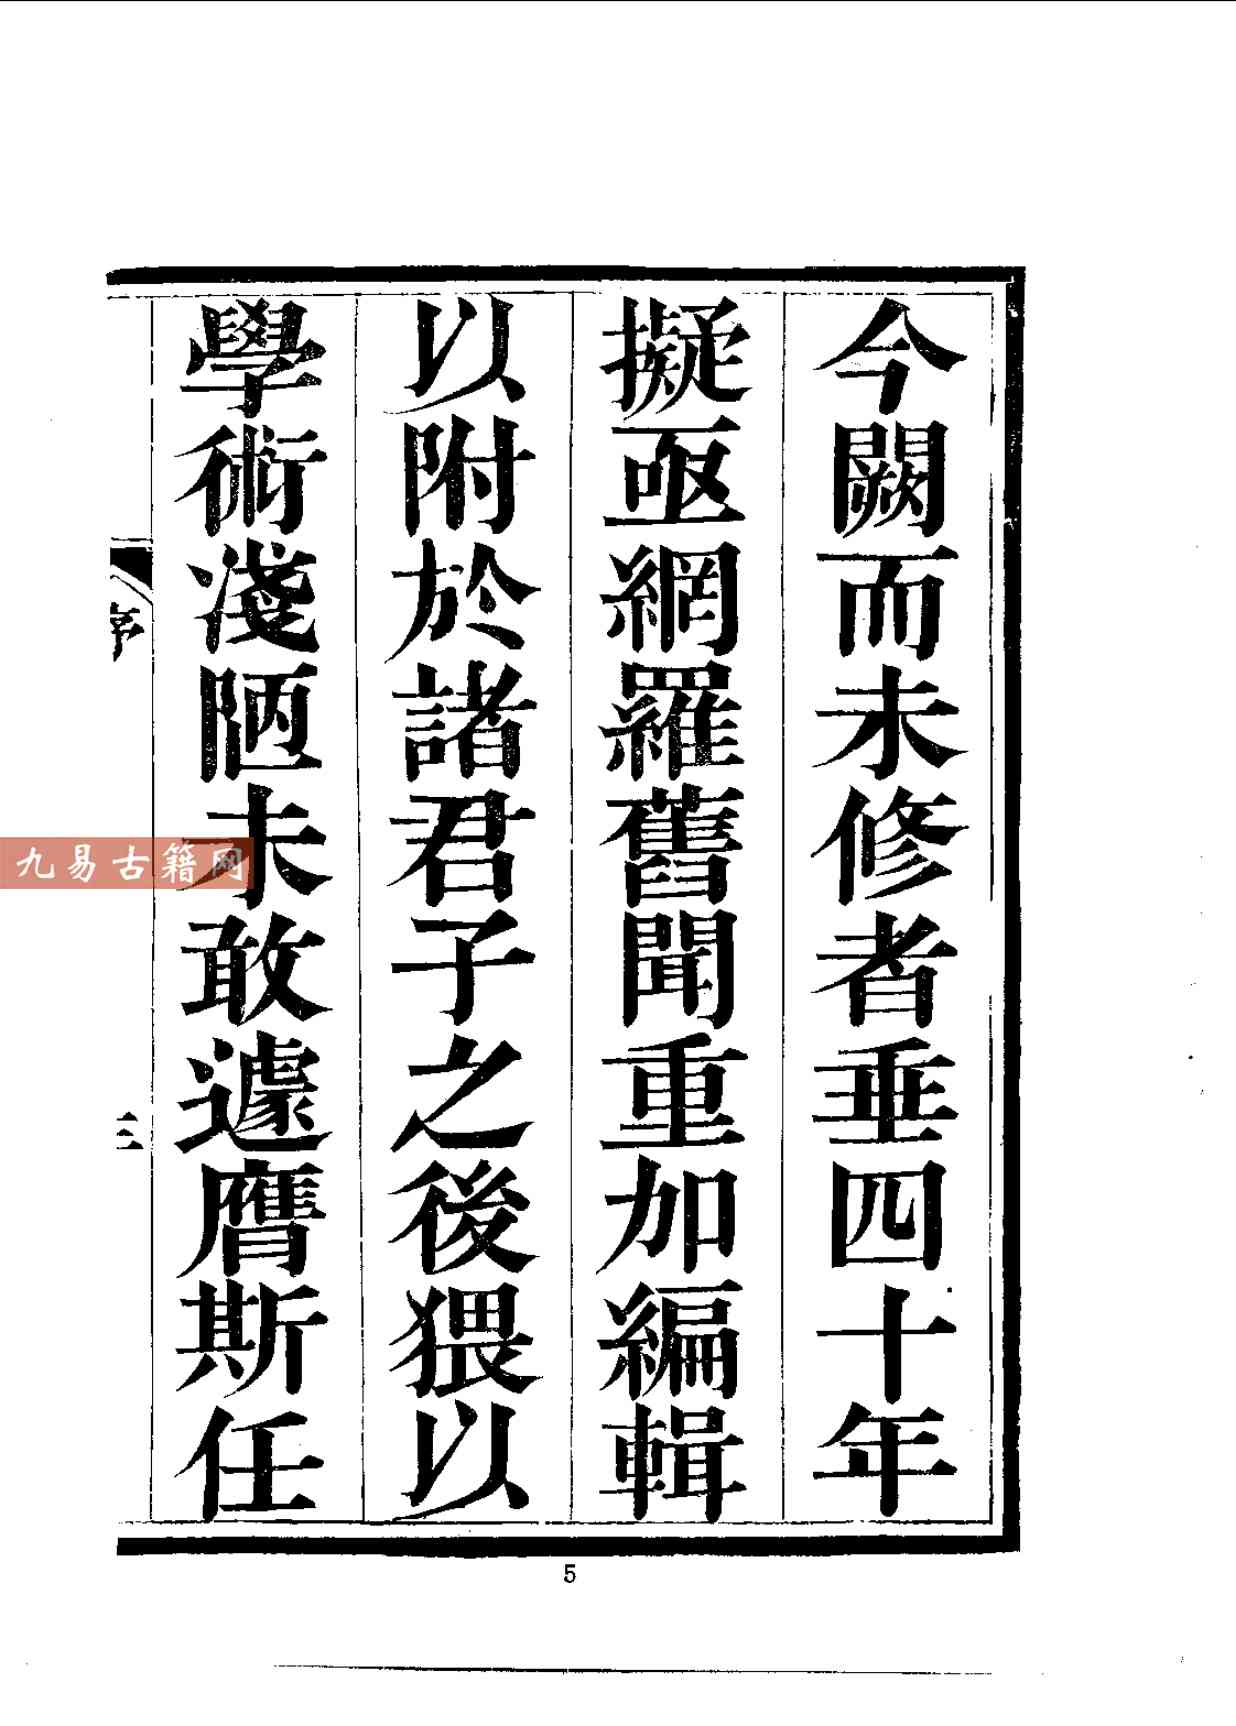 今闕而未修者垂四十年
擬亟網羅舊聞重加編輯
以附於諸君子之後猥以
學術淺陋未敢遽膺斯任
序
三
九易古籍网
5